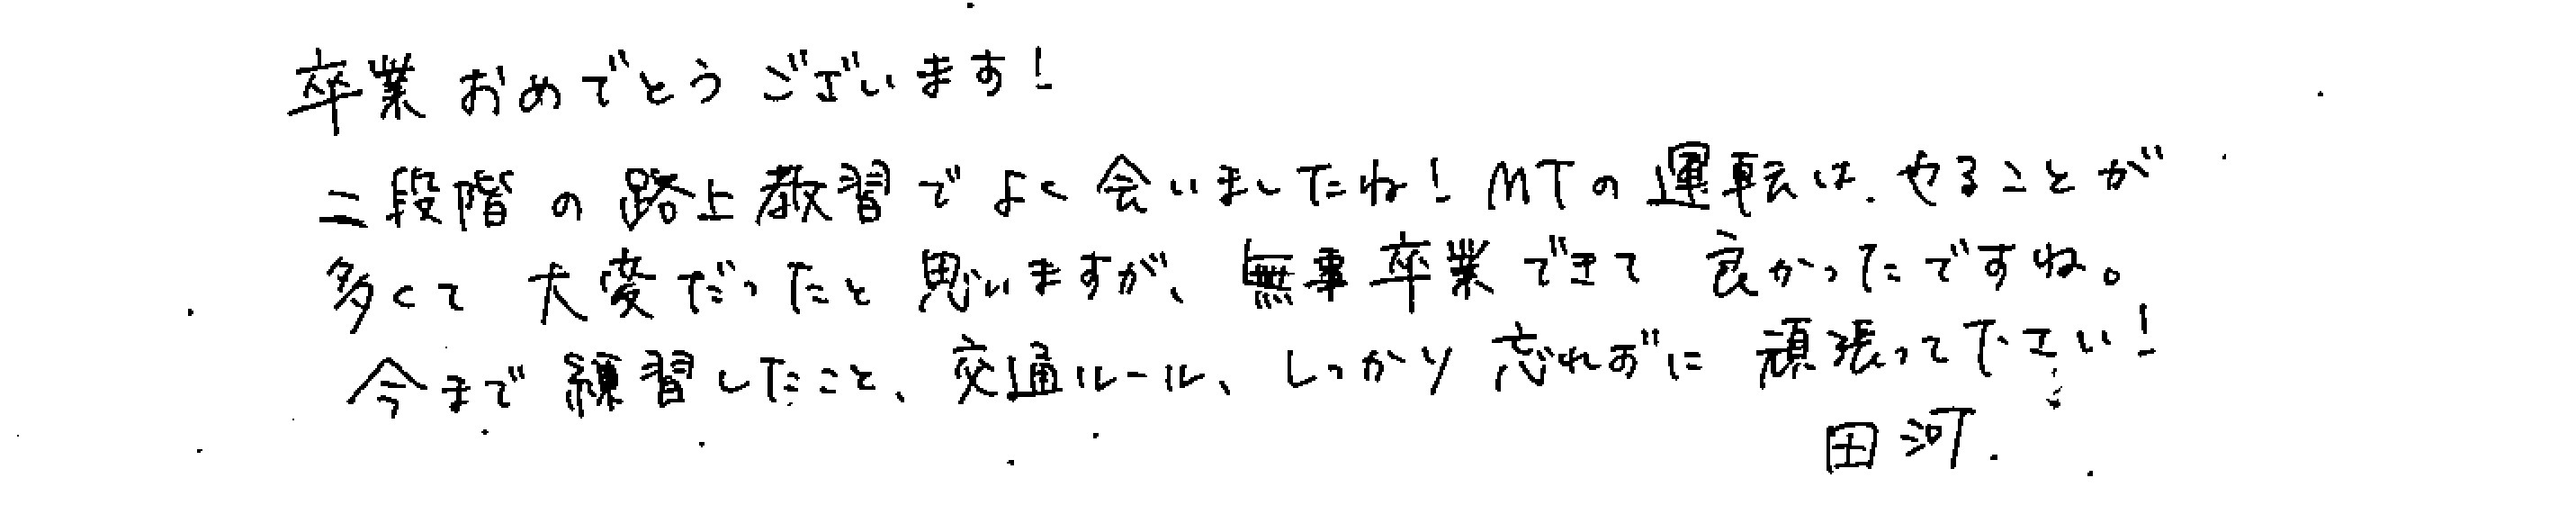 卒業おめでとうございます!
二段階の路上教習でよく会いましたね!MTの運転は、やることが
多くて大変だったと思いますが、無事卒業できて良かったですね。
今まで練習したこと、交通ルール、しっかり忘れずに頑張って下さい!
田河